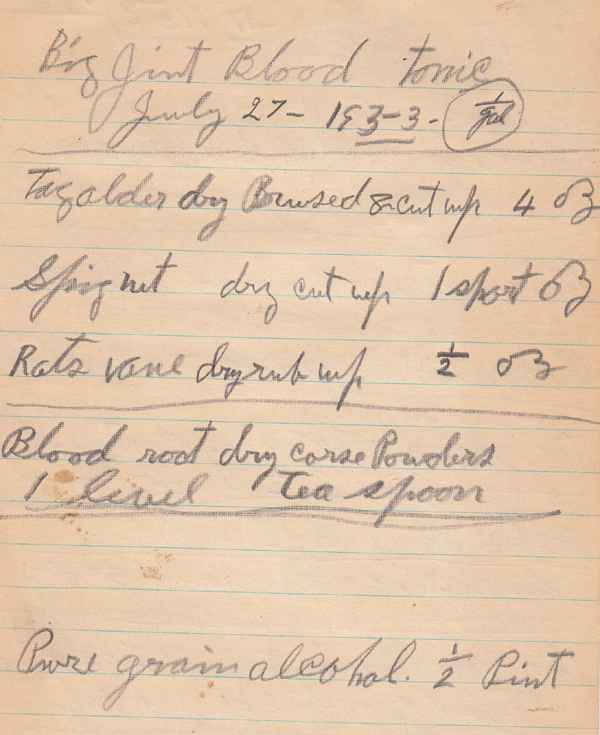 Big Jint Blood tonic
July 27- 1953- 1/gal
Tagalder dry Brused & cut up 4 oz
Spignet dry cut up 1 sport oz
Rats vane dry rub up 1/2 oz
Blood root dry corse Powders
1 level Tea spoon
Pure grain alcohol. 1/2 Pint